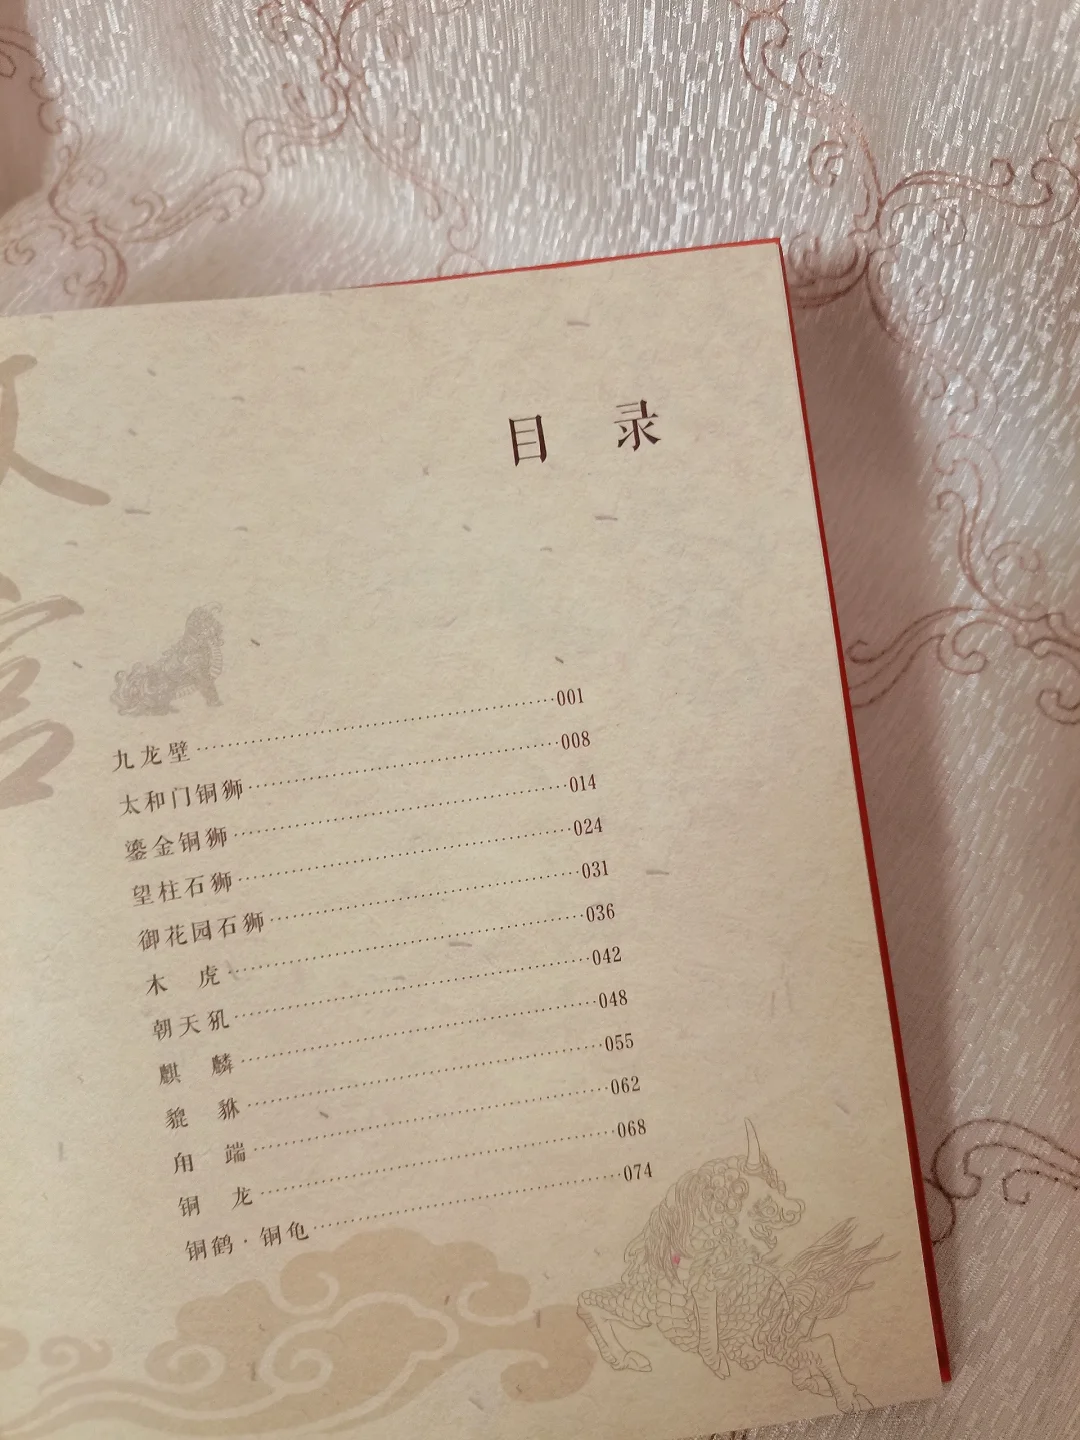 目 录
九龙壁……001
太和门铜狮……008
鎏金铜狮……014
望柱石狮……024
御花园石狮……031
木 虎……036
朝天犼……042
麒 麟……048
貔 貅……055
甪 端……062
铜 龙……068
铜鹤·铜龟……074